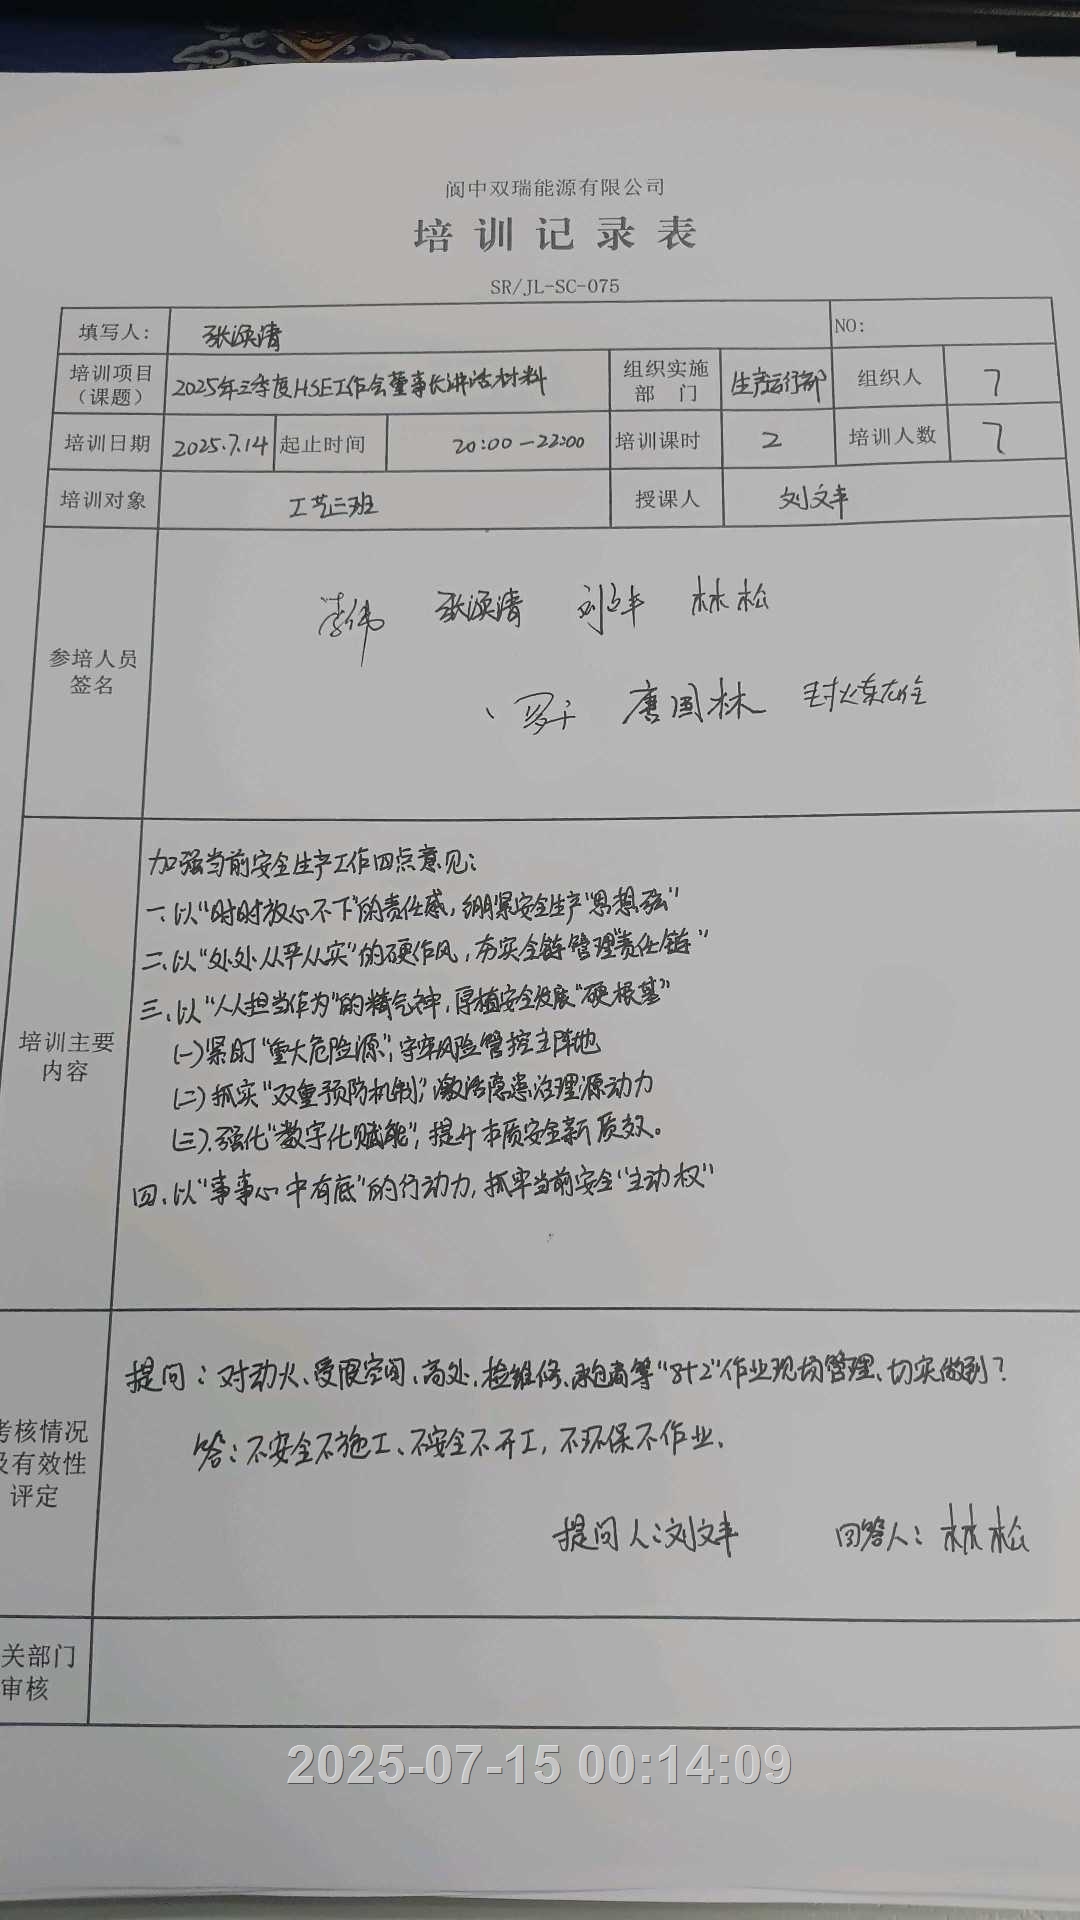 阆中双瑞能源有限公司
培训记录表
SR/JL-SC-075
填写人: 张颂清 NO:
培训项目（课题） 2025年三季度HSE工作会董事长讲话材料 组织实施部门 生产运行部 组织人 7
培训日期 2025.7.14 起止时间 20:00-22:00 培训课时 2 培训人数 7
培训对象 工艺三班 授课人 刘文丰
参培人员签名
李伟 张颂清 刘文丰 林松
唐国林
培训主要内容
加强当前安全生产工作四点意见:
一、以"时时放心不下"的责任感,绷紧安全生产"思想弦"
二、以"处处从严从实"的硬作风,夯实全链管理"责任链"
三、以"人人担当作为"的精气神,厚植安全发展"硬根基"
(一)紧盯"重大危险源",守牢风险管控主阵地
(二)抓实"双重预防机制",激活隐患治理源动力
(三).强化"数字化赋能",提升本质安全新质效。
四、以"事事心中有底"的行动力,抓牢当前安全"主动权"
考核情况及有效性评定
提问:对动火、受限空间、高处、检维修、承包商等"8+2"作业现场管理、切实做到?
答:不安全不施工、不安全不开工,不环保不作业、
提问人:刘文丰 回答人:林松
关部门审核
2025-07-15 00:14:09